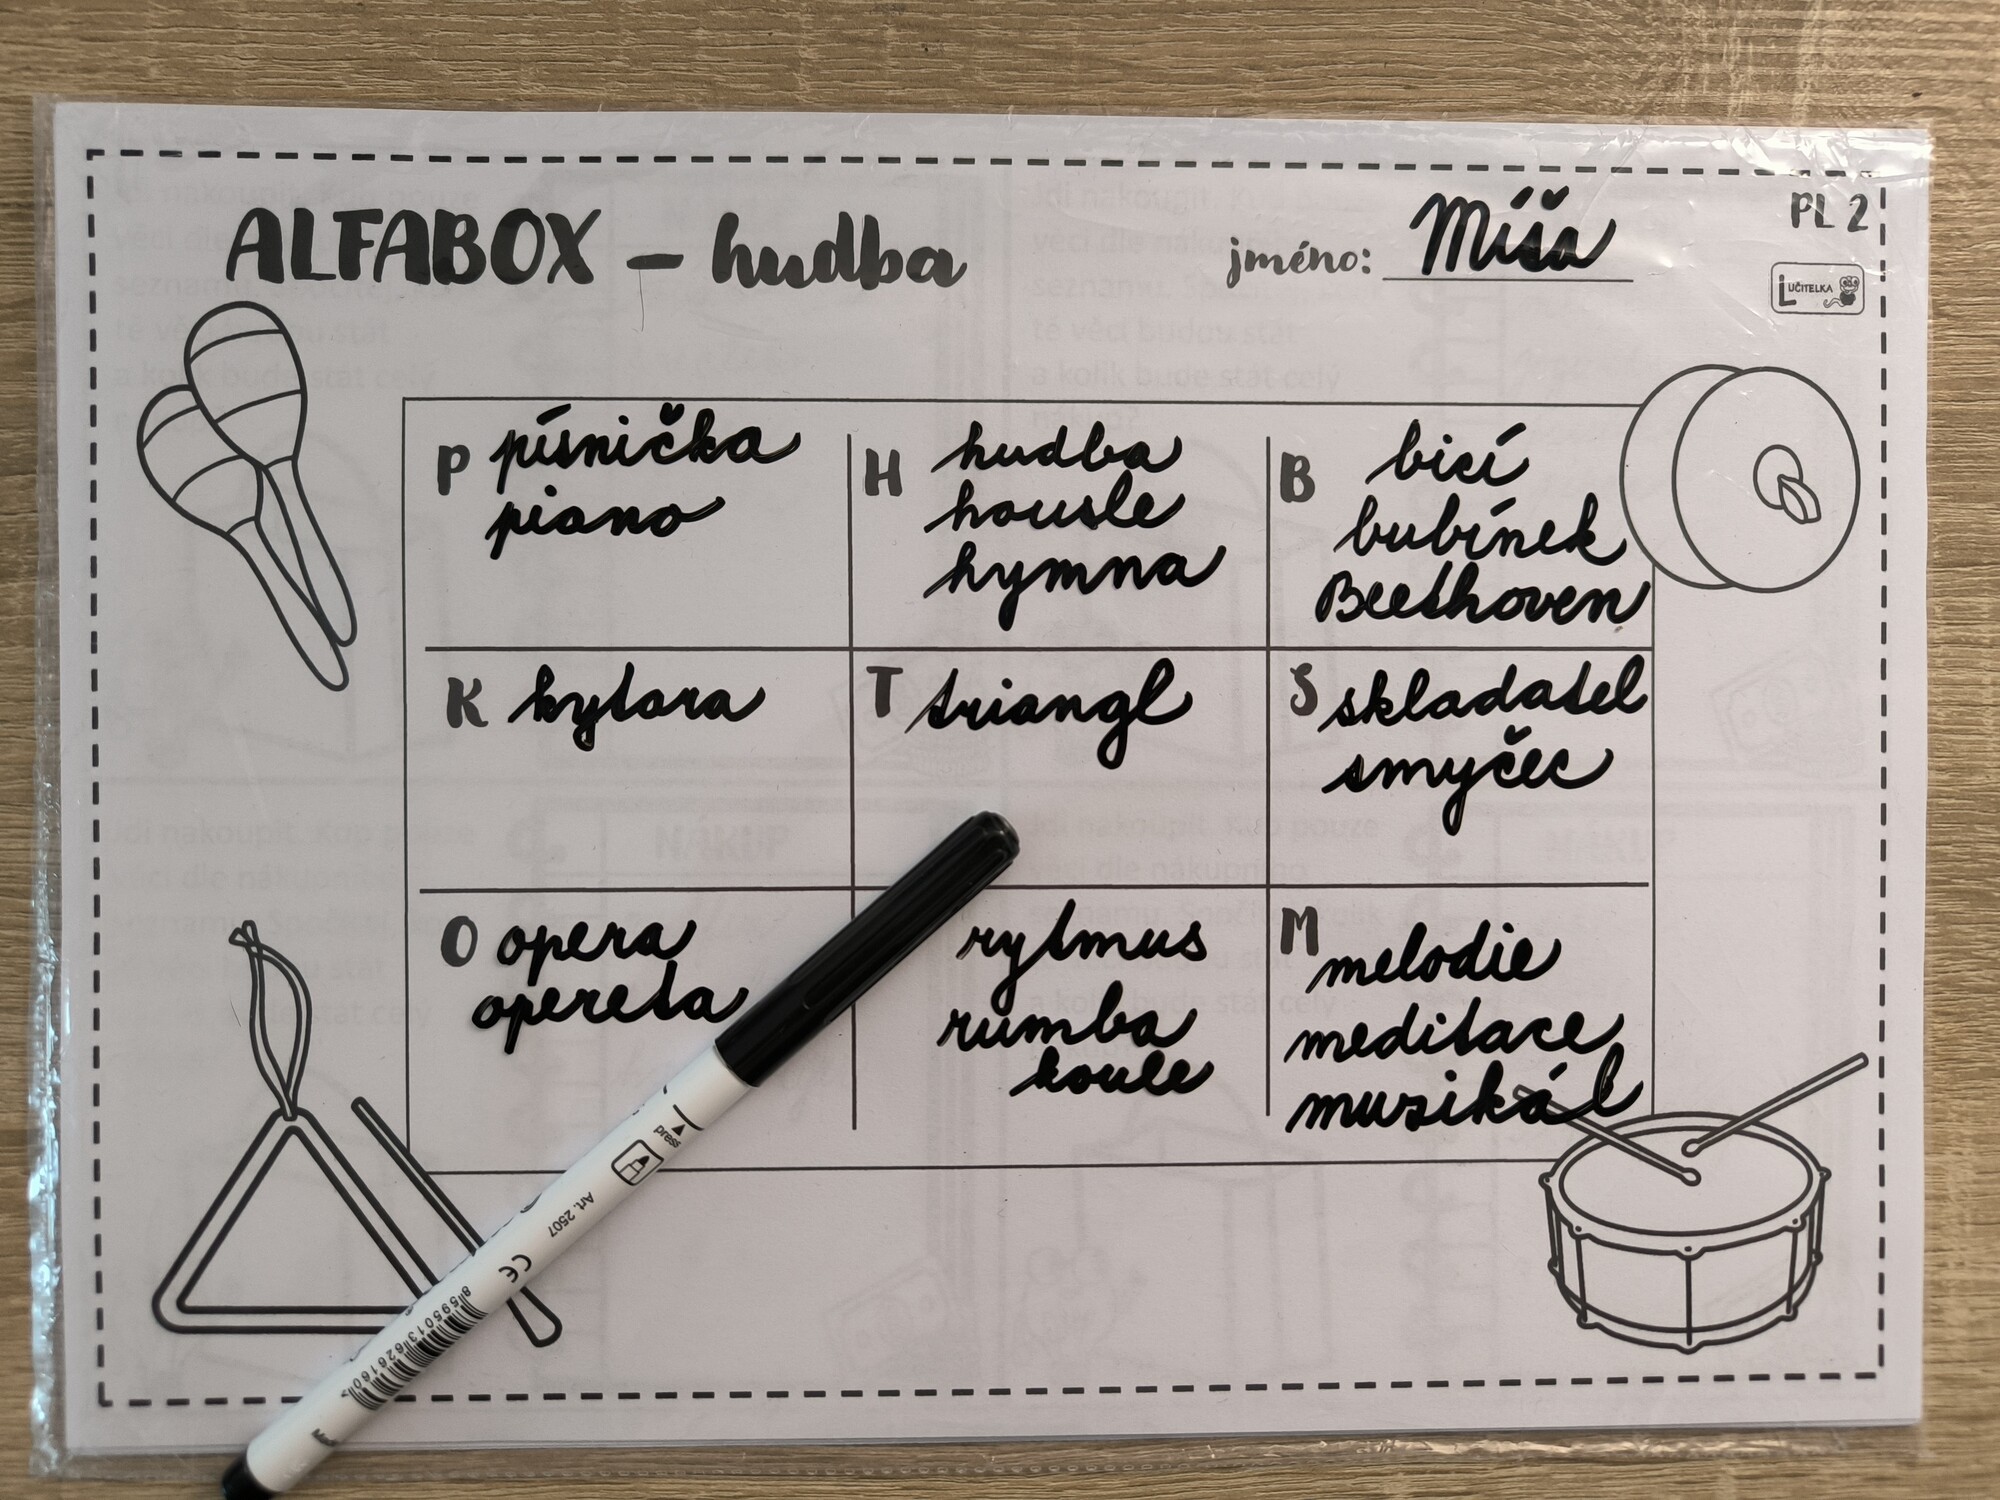 ALFABOX – hudba
jméno: Míša
PL 2
UČITELKA
P písnička
piano
H hudba
housle
hymna
B bicí
bubínek
Beethoven
K kytara
T triangl
S skladatel
smyčec
O opera
opereta
rytmus
rumba
koule
M melodie
meditace
muzikál
press
Art. 2507
CE
8595013626160